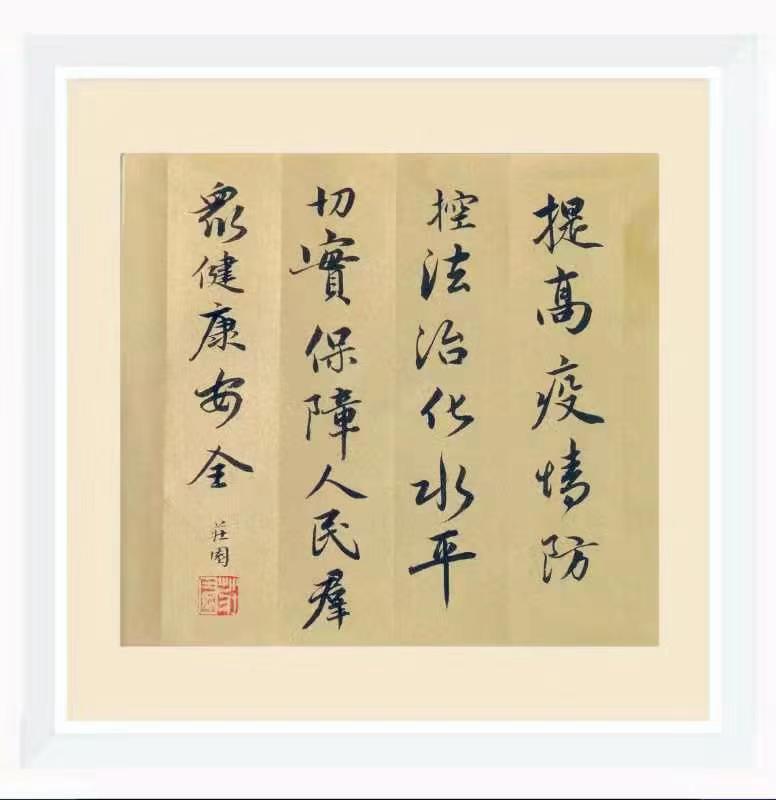 提高疫情防
控法治化水平
切實保障人民羣
眾健康安全
莊園